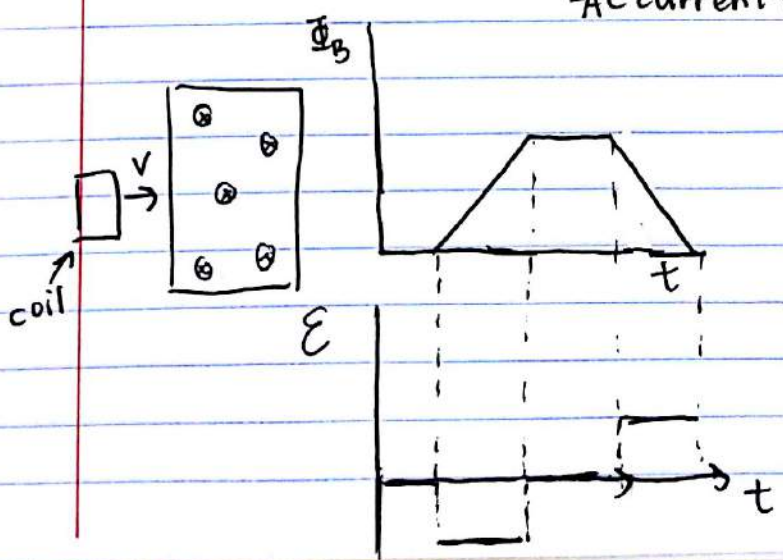 AC current
Φ_B
v
coil
t
ℰ
t